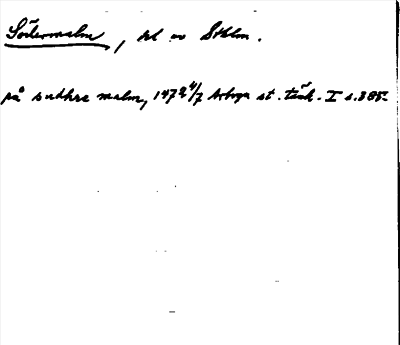 Södermalm, del av Sthlm.
på sudhre malm, 1472 4/7 Arboga st. tänk. I s. 385